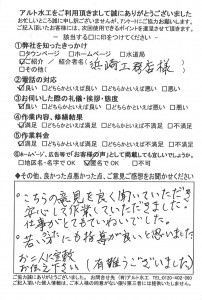 アルト水工をご利用頂きまして誠にありがとうございました
お忙しいところ誠に申し訳ございませんが、アンケートにご協力お願いします。
ご記入頂いたお客様には、次回使用できるポイントを還元させて頂きます
― 該当する□に印をつけてください ―
①弊社を知ったきっかけ
□タウンページ □ホームページ □水道局
☑ご紹介(紹介者名) 工務店様
□その他( )
②電話の対応
☑良い □どちらかといえば良い □どちらかといえば悪い □悪い
③お伺いした際の礼儀・挨拶・態度
☑良い □どちらかといえば良い □どちらかといえば悪い □悪い
④作業内容、修繕結果
☑満足 □どちらかといえば満足 □どちらかといえば不満足 □不満足
⑤作業料金
☑満足 □どちらかといえば満足 □どちらかといえば不満足 □不満足
⑥ホームページ、広告等で「お客様の声」として掲載しても宜しいでしょうか。
□地区名・名字でOK ☑匿名でOK □不可
●その他、良かった点悪かった点、ご意見ご感想をお聞かせください
こちらの意見を良く聞いていただき
安心して作業していただきました。
仕事がとてもていねいでした。
若い方にも指導が良いと思いました
お二人に
(有難うございました)
ご協力誠にありがとうございました。 お問合せ先(有)アルト水工 TEL.0120-402-350
ご記入頂いた個人情報は、ご本人様の同意がない限り第三者には提供いたしません。